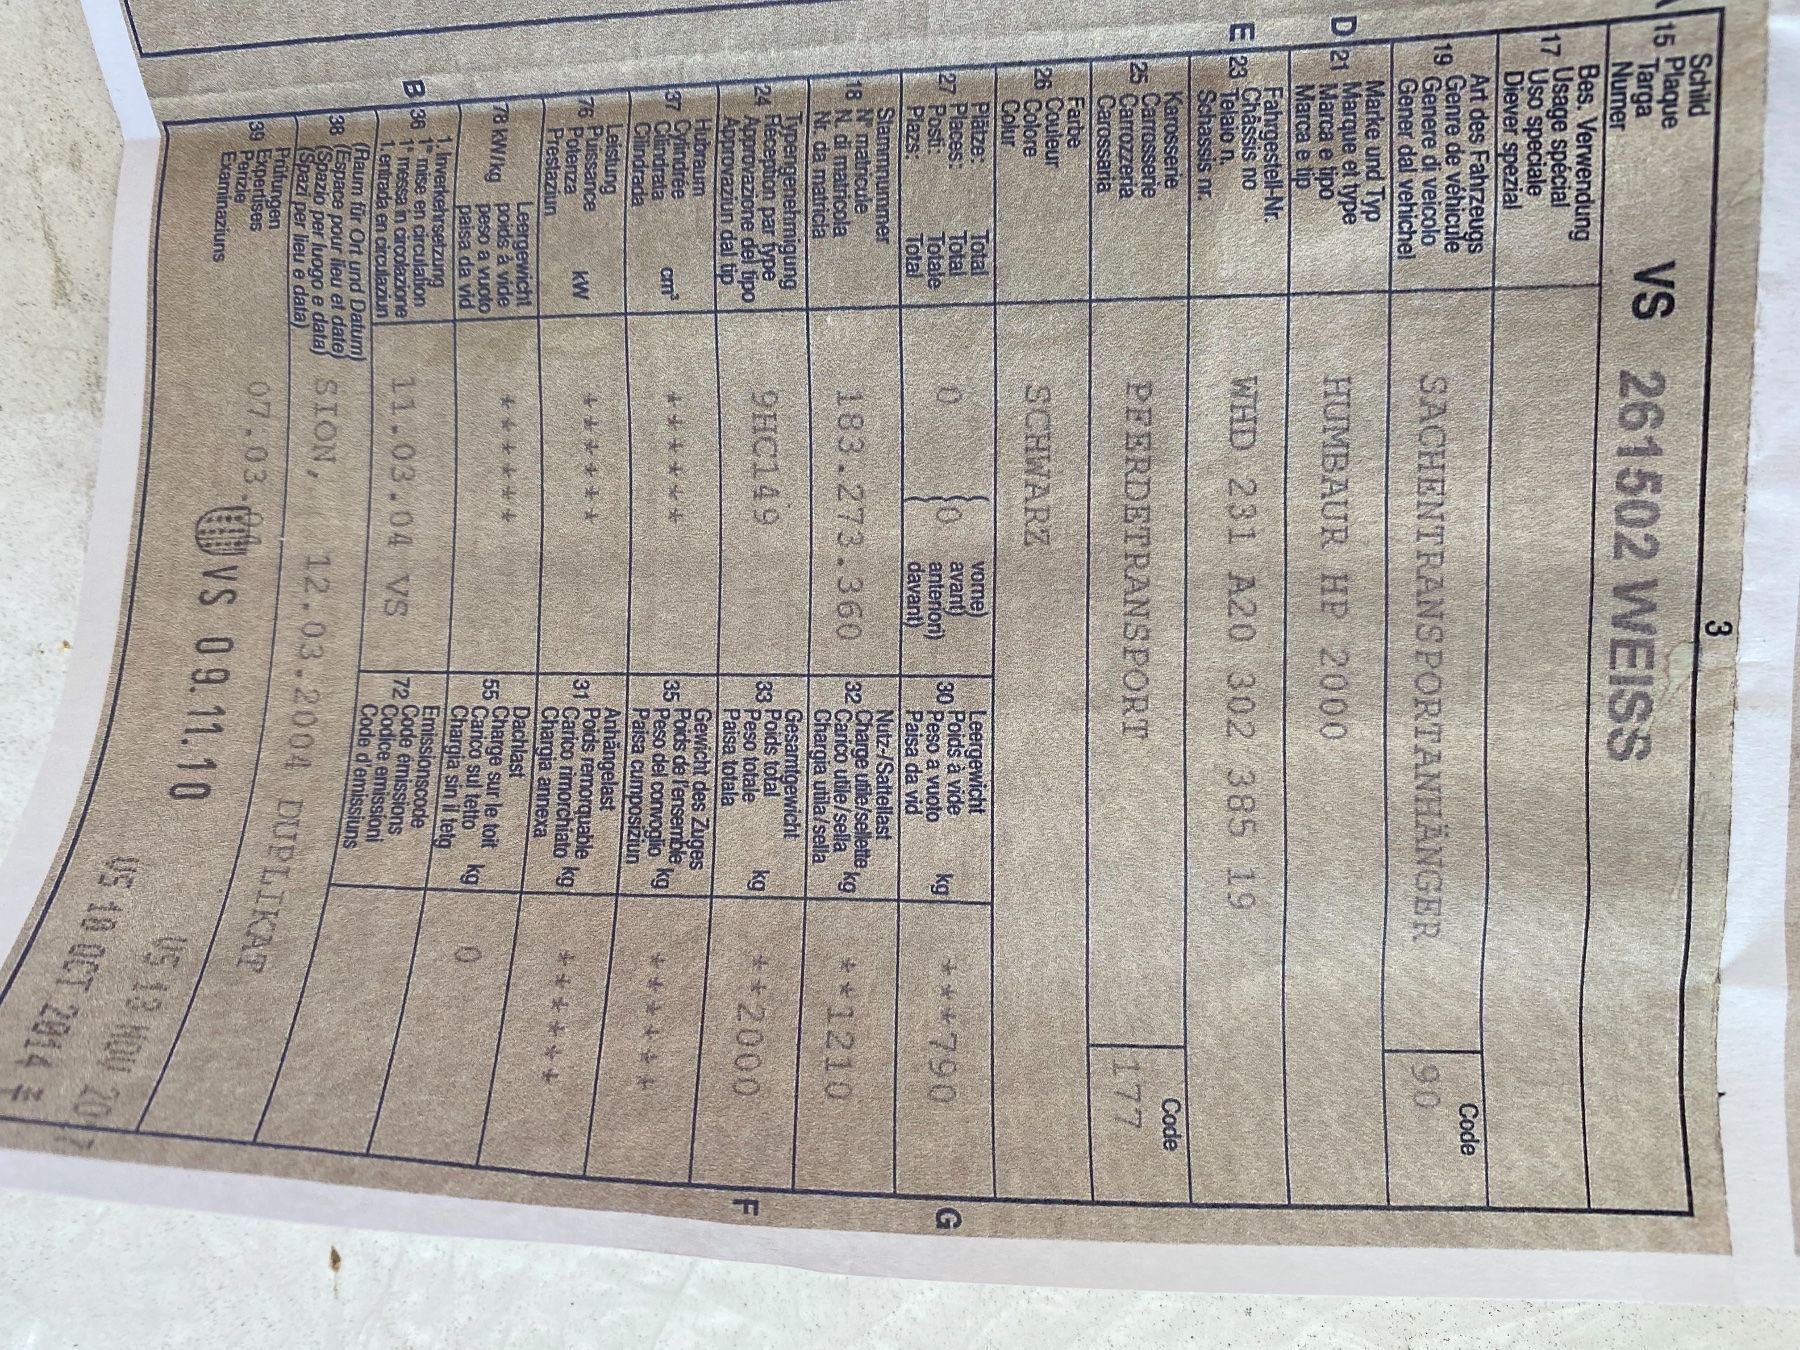 3
Schild
15 Plaque
Targa
Numer
VS 261502 WEISS
Bes. Verwendung
17 Usage spécial
Uso speciale
Diever spezial
Art des Fahrzeugs
19 Genre de véhicule
Genere di veicolo
Gener dal vehichel
SACHENTRANSPORTANHÄNGER
Code
90
Marke und Typ
D 21 Marque et type
Marca e tipo
Marca e tip
HUMBAUR HP 2000
Fahrgestell-Nr.
E 23 Châssis no
Telaio n.
Schassis nr.
WHD 231 A20 302 385 19
Karosserie
25 Carrosserie
Carrozzeria
Carossaria
PFERDETRANSPORT
Code
177
Farbe
26 Couleur
Colore
Colur
SCHWARZ
Plätze: Total
27 Places: Total
Posti: Totale
Plazs: Total
0
{0
vorne)
avant)
anteriori)
davant)
Leergewicht
30 Poids à vide
Peso a vuoto kg
Paisa da vid
***790
G
Stammnummer
18 N° matricule
N. di matricola
Nr. da matricla
183.273.360
Nutz-/Sattellast
32 Charge utile/sellette
Carico utile/sella kg
Chargia utila/sella
**1210
Typengenehmigung
24 Réception par type
Approvazione del tipo
Approvaziun dal tip
9HC149
Gesamtgewicht
33 Poids total
Peso totale kg
Paisa totala
**2000
F
Hubraum
37 Cylindrée
Cilindrata cm³
Cilindrada
******
Gewicht des Zuges
35 Poids de l'ensemble
Peso del convoglio kg
Paisa cumposiziun
******
Leistung
76 Puissance
Potenza kW
Prestaziun
******
Anhängelast
31 Poids remorquable
Carico rimorchiato kg
Chargia annexa
******
Leergewicht
78 kW/kg poids à vide
peso a vuoto
paisa da vid
******
Dachlast
55 Charge sur le toit
Carico sul tetto kg
Chargia sin il tetg
0
1. Inverkehrsetzung
B 36 1re mise en circulation
1a messa in circolazione
1. entrada en circulaziun
11.03.04 VS
Emissionscode
72 Code émissions
Codice emissioni
Code d'emissiuns
(Raum für Ort und Datum)
38 (Espace pour lieu et date)
(Spazio per luogo e data)
(Spazi per lieu e data)
SION, 12.03.2004 DUPLIKAT
Prüfungen
39 Expertises
Perizie
Examinaziuns
07.03.
VS 09.11.10
VS 13 NOV
VS 10 OCT 2014